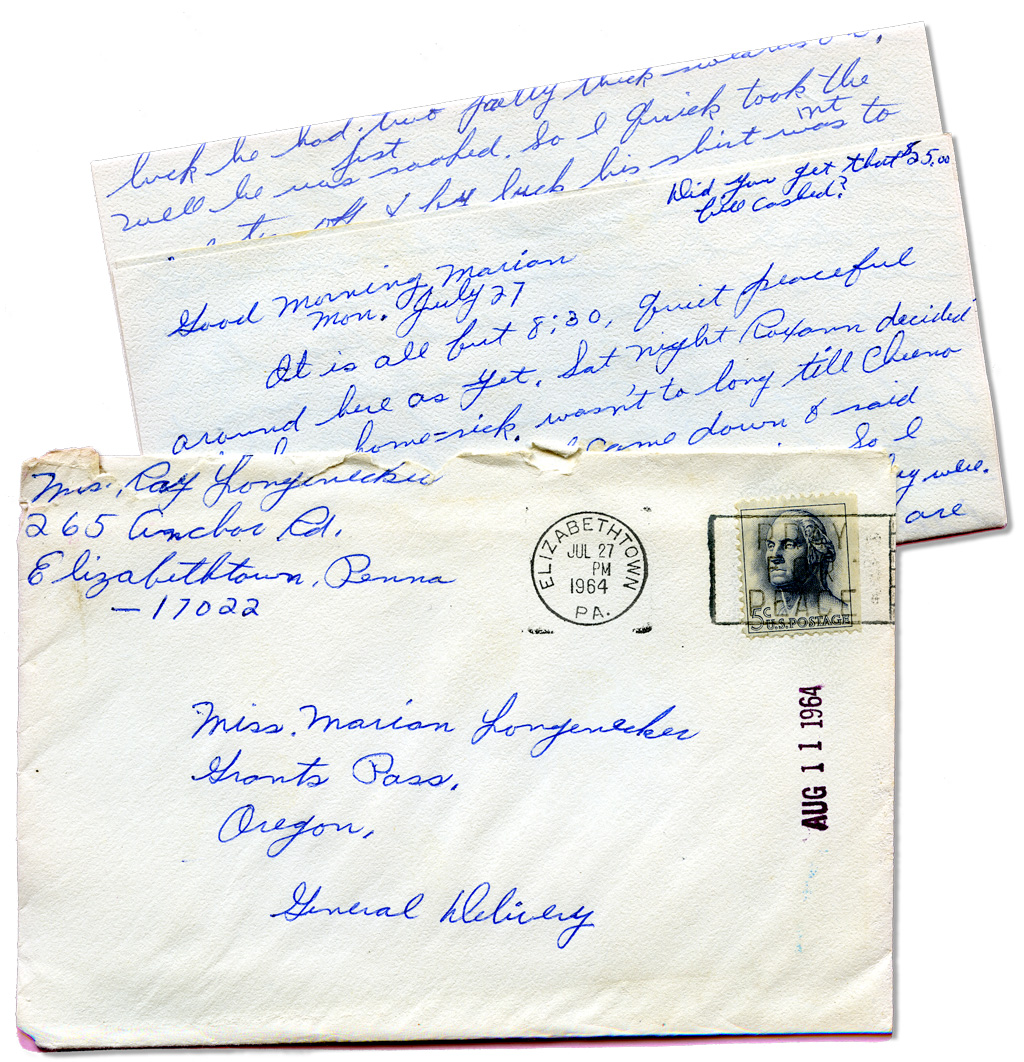 luck he had. two thick
just
well he was soaked. So I quick took the
off & his shirt was to
Did you get that $25.00
bill cashed?
Good Morning, Marian
Mon. July 27
It is all but 8:30, quiet peaceful
around here as yet. Sat night Roxann decided
home=sick. wasn't to long till Cheeno
came down & said
So I
were.
are
Mrs. Ray Longenecker
265 Anchor Rd.
Elizabethtown, Penna
— 17022
ELIZABETHTOWN
JUL 27
PM
1964
PA.
PRAY
PEACE
5c U.S. POSTAGE
AUG 11 1964
Miss. Marian Longenecker
Grants Pass,
Oregon,
General Delivery